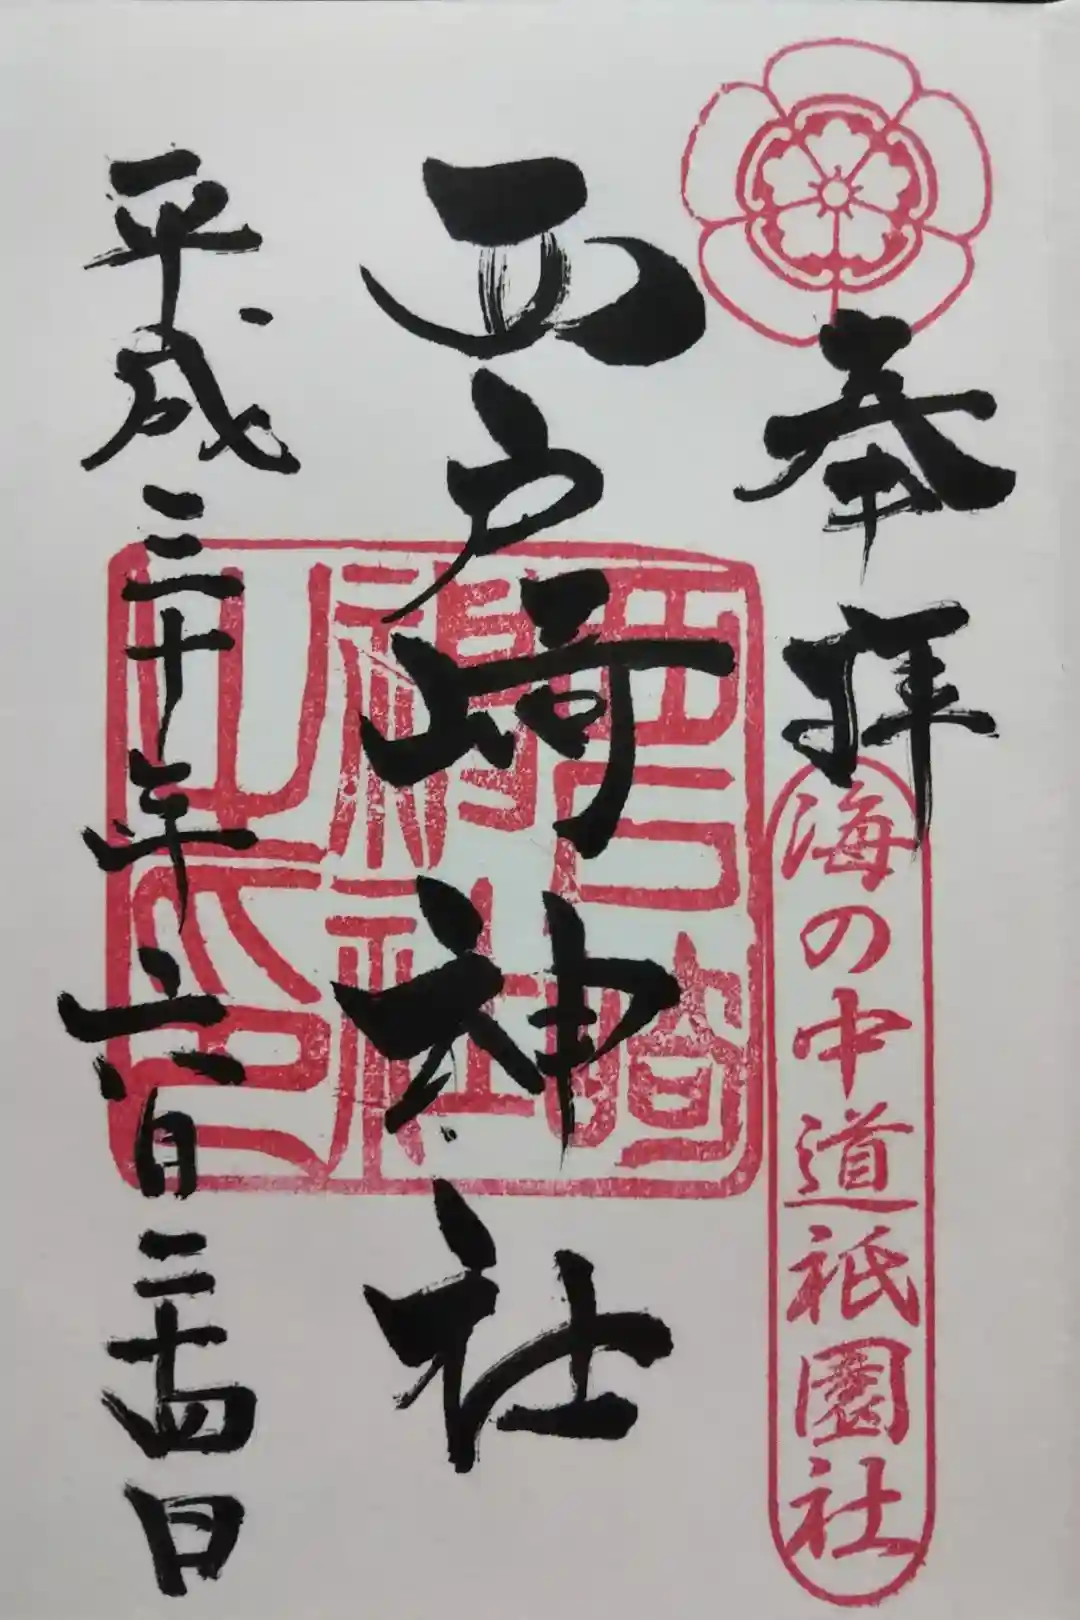 奉拝
海の中道祇園社
西戸崎神社
西戸崎
神社
之印
平成三十年六月二十四日